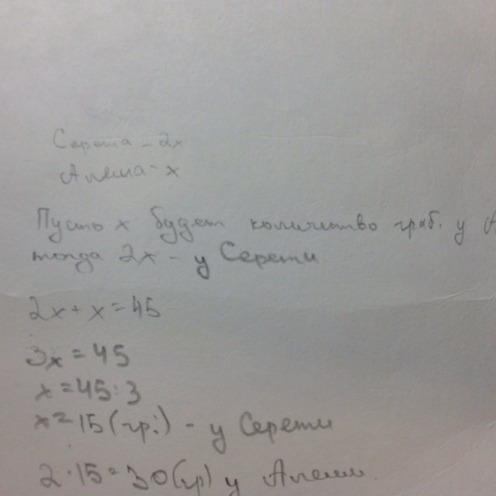 Сережа - 2x
Алеша - x
Пусть x будет количество гриб. у А
тогда 2x - у Сережи
2x + x = 45
3x = 45
x = 45:3
x = 15 (гр.) - у Сережи
2·15 = 30 (гр) у Алеши.